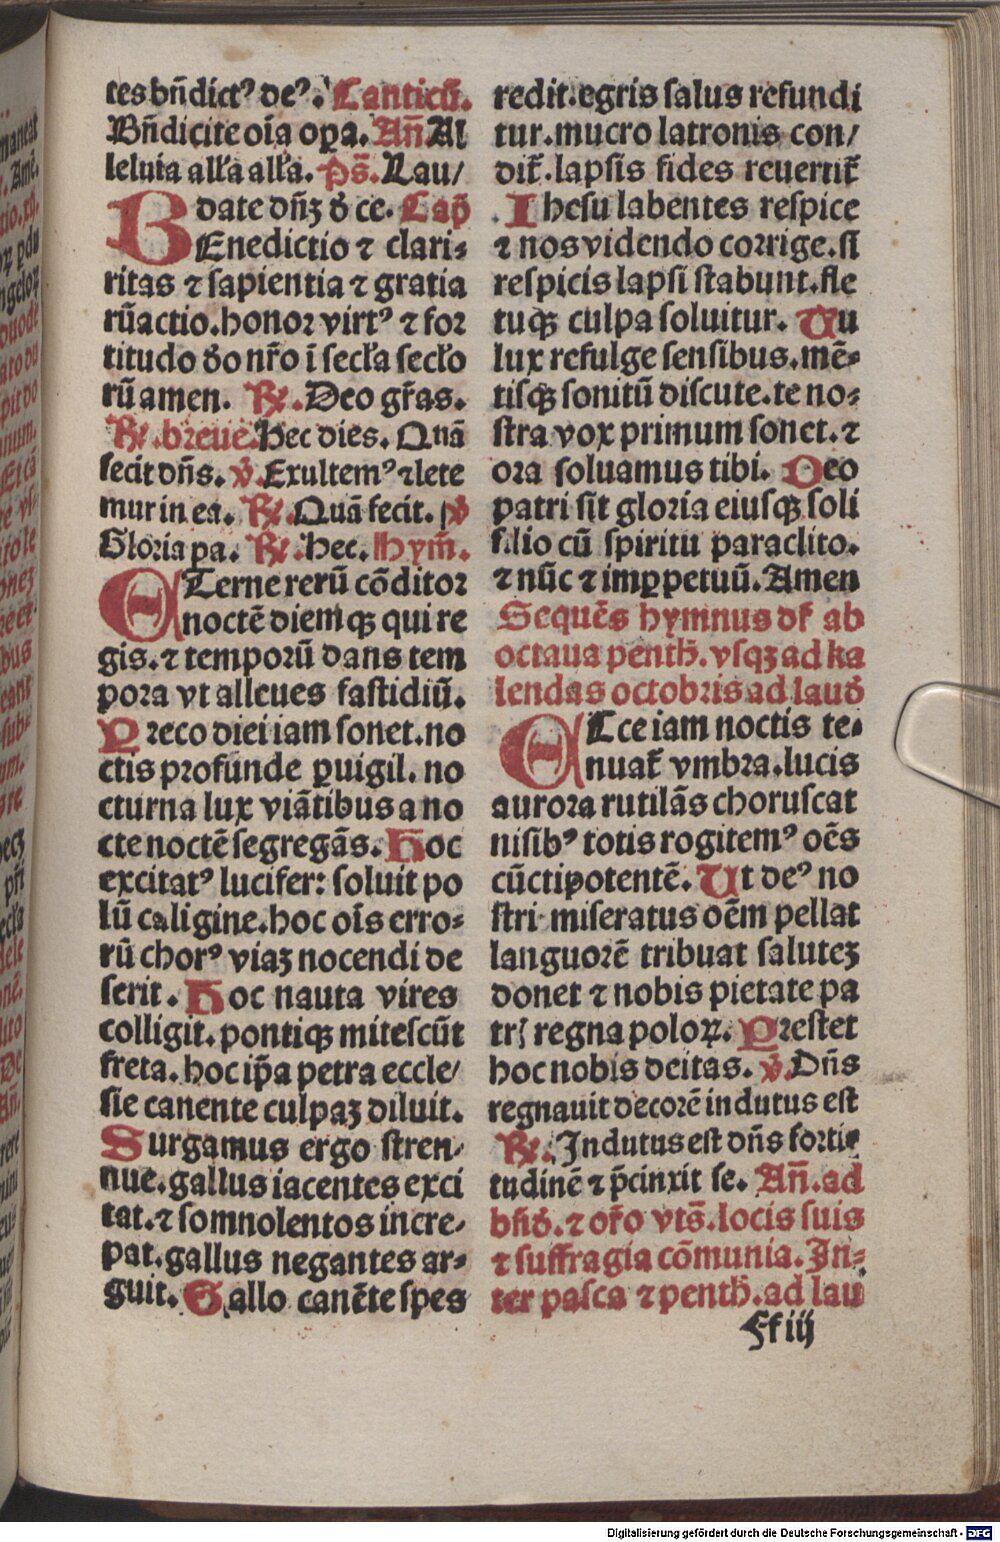 tes bñdictꝰ deꝰ. Canticū.
Bñdicite oīa oꝑa. Añ Al
leluia alła alła. p̄s. Lau/
date dñʒ ð ce. Cap̄
BEnedictio ⁊ clari⸗
ritas ⁊ sapientia ⁊ gratia
rūactio. honor virtꝰ ⁊ for
titudo ðo nr̄o ī secła secło
rū amen. ℞. Deo gr̄as.
℞. breue. Hec dies. Quā
fecit dñs. ℣. Exultemꝰ ⁊ lete
mur in ea. ℞. Quā fecit. ℣
Gloria pa. ℞. Hec. Hym̄.
ETerne rerū cōditor
noctē diemqꝫ qui re
gis. ⁊ temporū dans tem
pora vt alleues fastidiū.
Preco diei iam sonet. no
ctis profunde ꝑuigil. no
cturna lux viātibus a no
cte noctē segregās. Hoc
excitatꝰ lucifer: soluit po
lū caligine. hoc oīs erro⸗
rū chorꝰ viaʒ nocendi de
serit. Hoc nauta vires
colligit. pontiqꝫ mitescūt
freta. hoc ip̄a petra eccle/
sie canente culpaʒ diluit.
Surgamus ergo stren/
nue. gallus iacentes exci
tat. ⁊ somnolentos incre/
pat. gallus negantes ar⸗
guit. Gallo canēte spes
redit. egris salus refundi
tur. mucro latronis con/
dit̄. lapsis fides reuertit̄
Ihesu labentes respice
⁊ nos videndo corrige. si
respicis lapsi stabunt. fle
tuqꝫ culpa soluitur. Tu
lux refulge sensibus. mē⸗
tisqꝫ sonitū discute. te no⸗
stra vox primum sonet. ⁊
ora soluamus tibi. Deo
patri sit gloria eiusqꝫ soli
filio cū spiritu paraclito.
⁊ nūc ⁊ imꝑpetuū. Amen
Sequēs hymnus dr̄ ab
octaua penth̄. vsqʒ ad ka
lendas octobris ad lauð
ECce iam noctis te⸗
nuat̄ vmbra. lucis
aurora rutilās choruscat
nisibꝰ totis rogitemꝰ oēs
cūctipotentē. Ut deꝰ no
stri miseratus oēm pellat
languorē tribuat saluteʒ
donet ⁊ nobis pietate pa
trꝭ regna poloꝝ. Prestet
hoc nobis deitas. ℣. Dñs
regnauit decorē indutus est
℞. Indutus est dñs forti⸗
tudinē ⁊ p̄cinxit se. Añ. ad
bñð. ⁊ or̄o vts̄. locis suis
⁊ suffragia cōmunia. In⸗
ter pasca ⁊ penth̄. ad lau
Ff iij
Digitalisierung gefördert durch die Deutsche Forschungsgemeinschaft - DFG